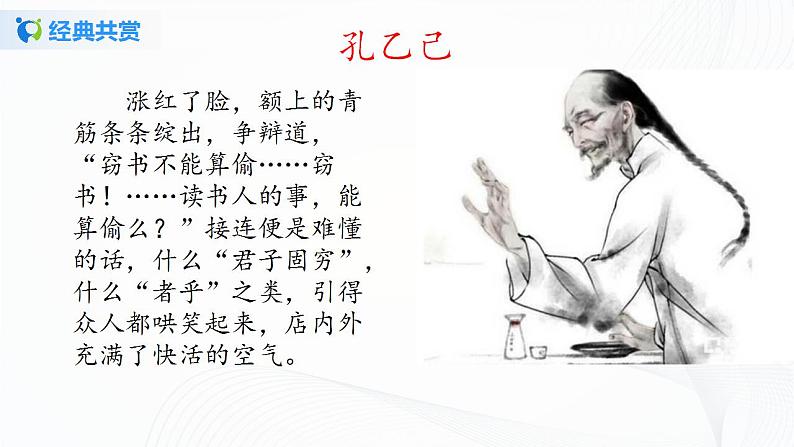 经典共赏
孔乙己
涨红了脸，额上的青
筋条条绽出，争辩道，
“窃书不能算偷……窃
书！……读书人的事，能
算偷么？”接连便是难懂
的话，什么“君子固穷”，
什么“者乎”之类，引得
众人都哄笑起来，店内外
充满了快活的空气。